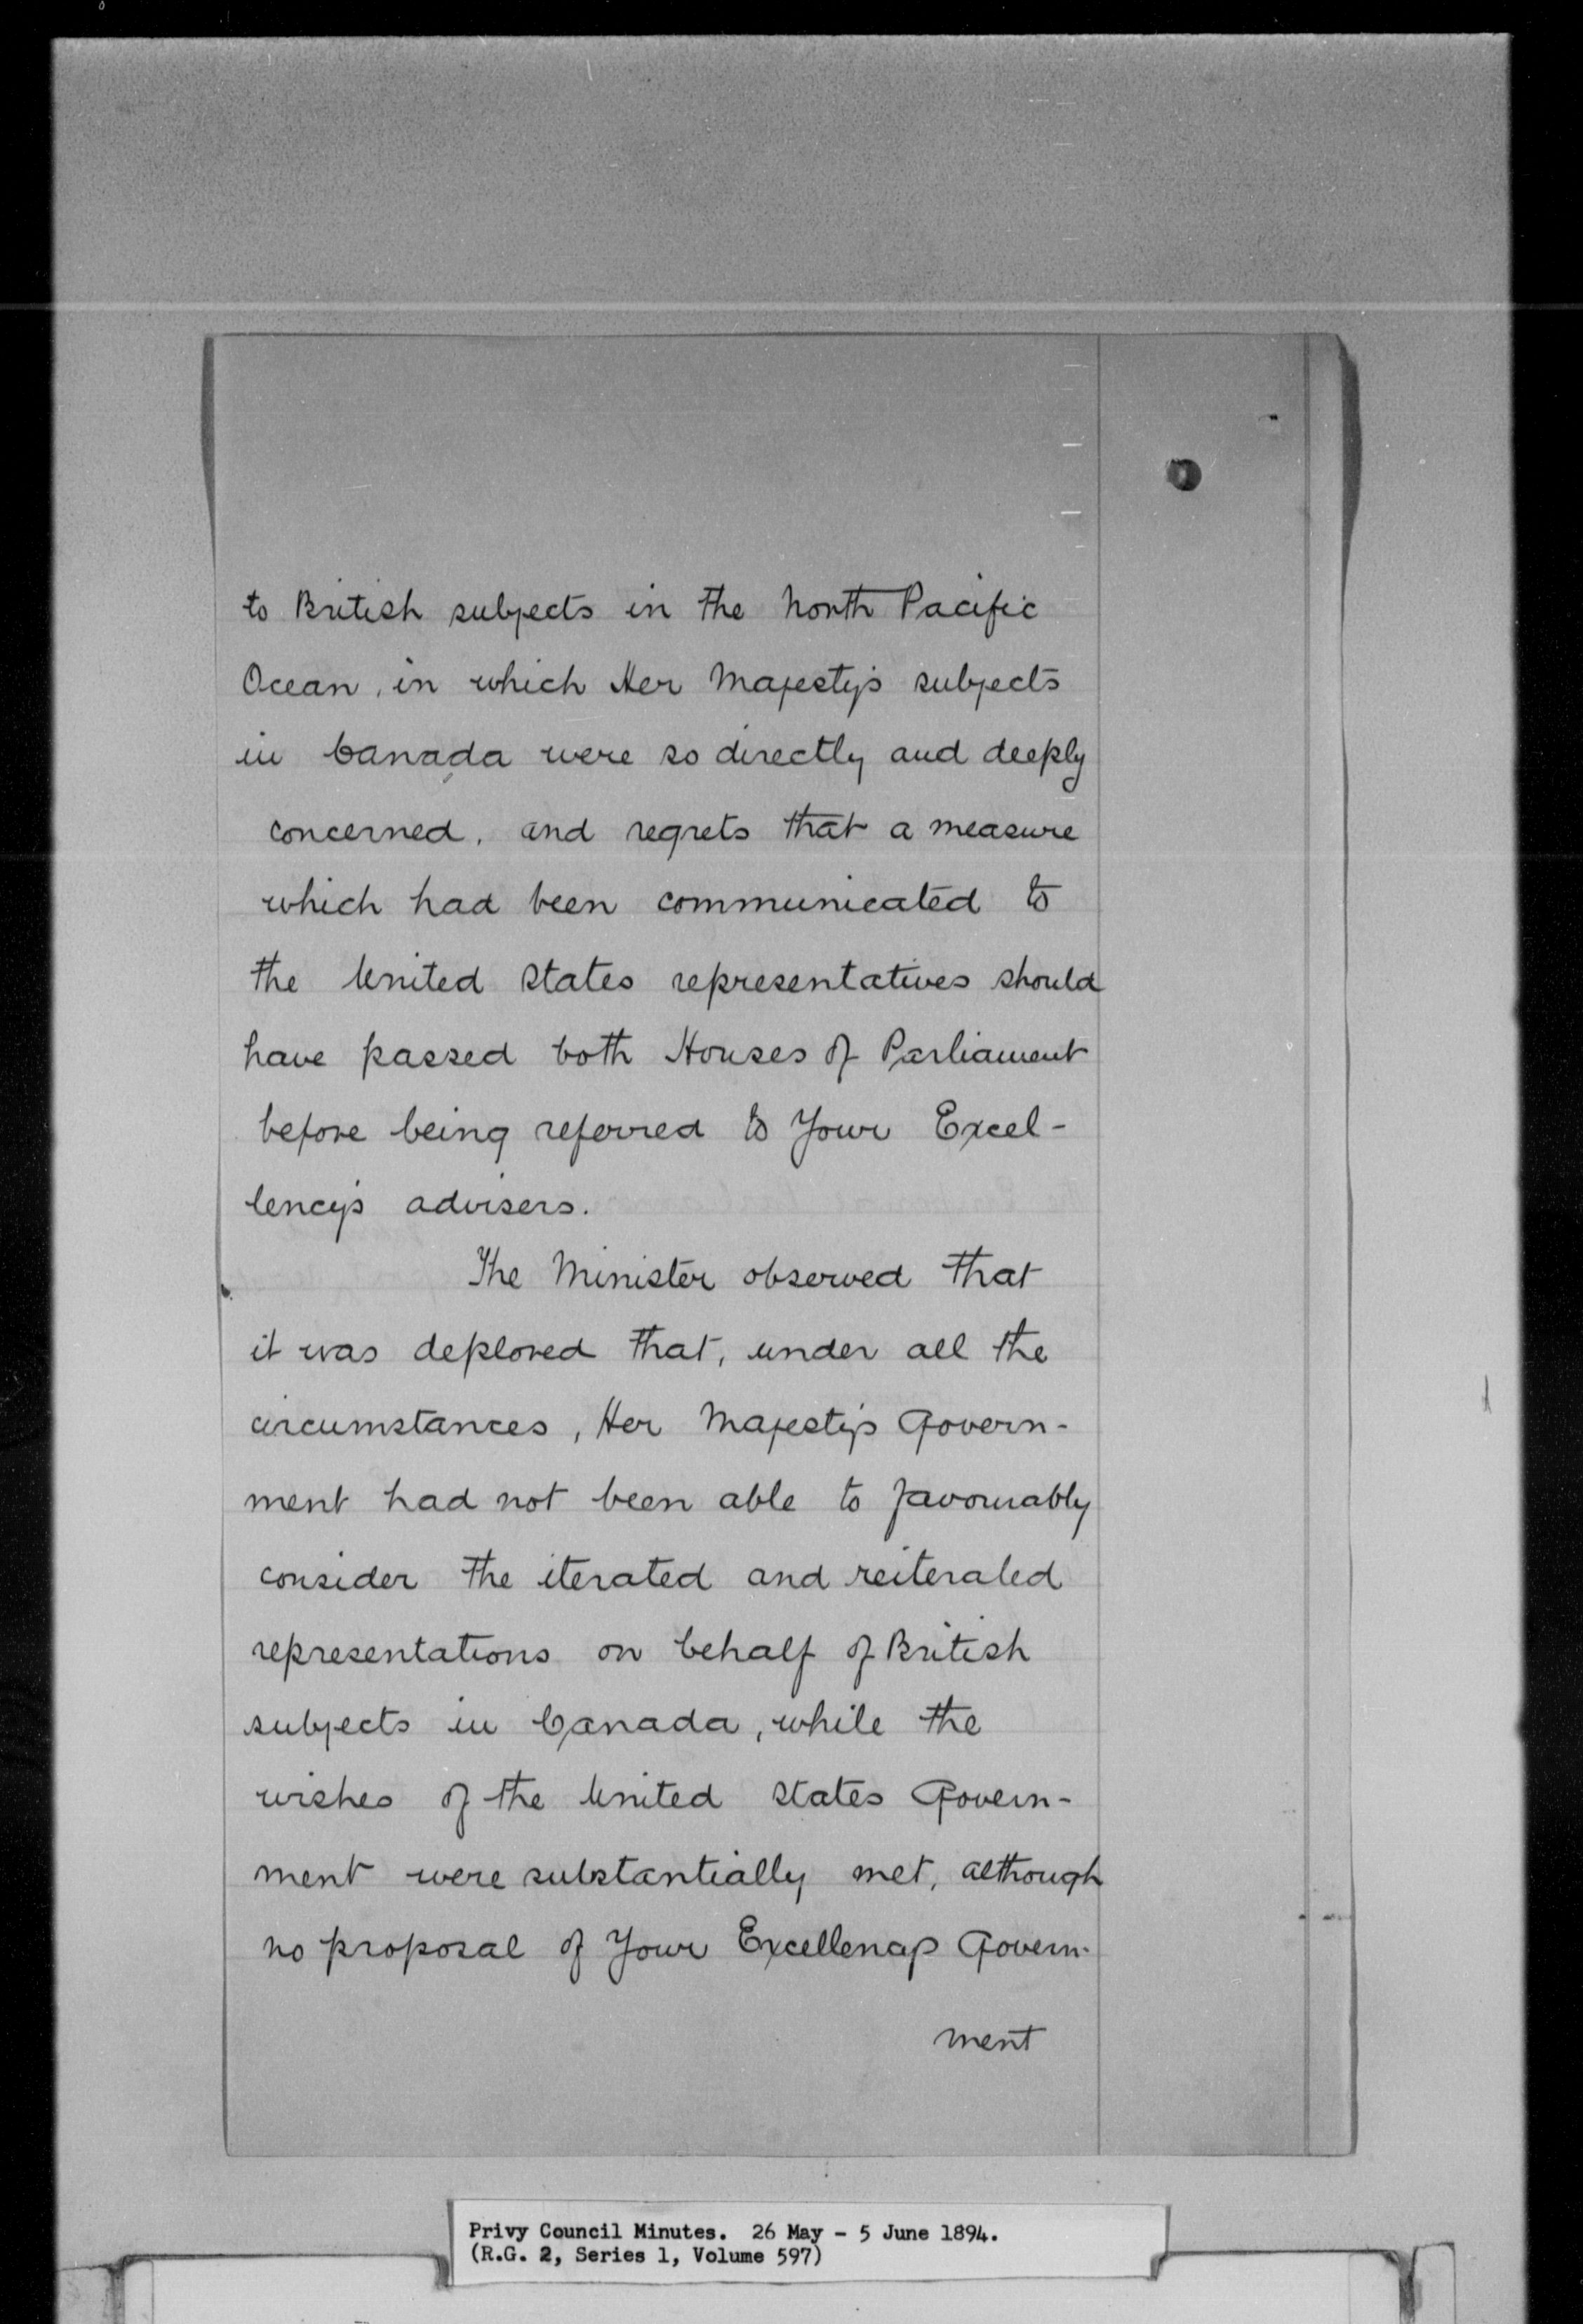 to British subjects in the North Pacific
Ocean, in which Her Majesty's subjects
in Canada were so directly and deeply
concerned, and regrets that a measure
which had been communicated to
the United States representatives should
have passed both Houses of Parliament
before being referred to Your Excel-
lency's advisers.
The Minister observed that
it was deplored that, under all the
circumstances, Her Majesty's Govern-
ment had not been able to favourably
consider the iterated and reiterated
representations on behalf of British
subjects in Canada, while the
wishes of the United States Govern-
ment were substantially met, although
no proposal of Your Excellency's Govern-
ment
Privy Council Minutes. 26 May - 5 June 1894.
(R.G. 2, Series 1, Volume 597)